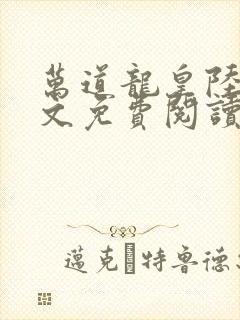 萬道龍皇陸
文免費閱讀
邁克 特魯德